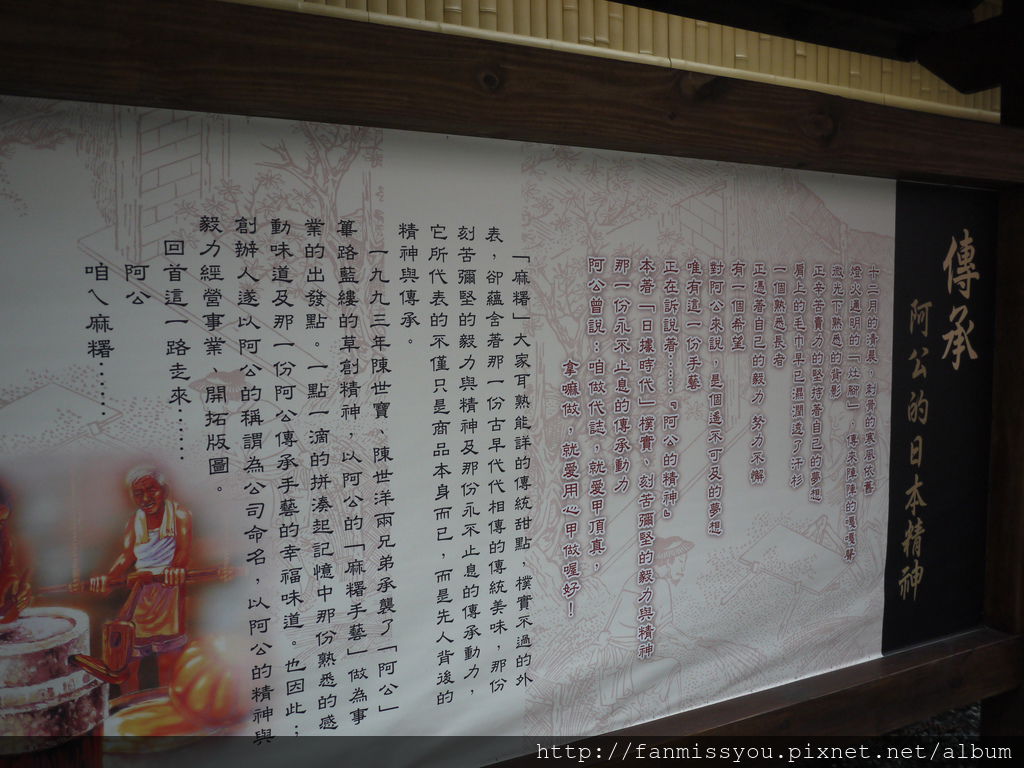 傳承
阿公的日本精神
十二月的清晨，刺骨的寒風依舊
燈火通明的「灶腳」，傳來陣陣的嘎嘎聲
微光下熟悉的背影
正辛苦賣力的堅持著自己的夢想
肩上的毛巾早已濕潤遠了汗衫
一個熟悉長者
正憑著自己的毅力 努力不懈
有一個希望
對阿公來說，是個遙不可及的夢想
唯有這一份手藝
正在訴說著……『阿公的精神』
本著「日據時代」樸實、刻苦彌堅的毅力與精神
那一份永不止息的傳承動力
阿公曾說：咱做代誌，就愛甲頂真，
拿嘛做，就愛用心甲做喔好！
「麻糬」大家耳熟能詳的傳統甜點，樸實不過的外
表，卻蘊含著那一份古早代代相傳的傳統美味，那份
刻苦彌堅的毅力與精神及那份永不止息的傳承動力，
它所代表的不僅只是商品本身而已，而是先人背後的
精神與傳承。
一九九三年陳世寶、陳世洋兩兄弟承襲了「阿公」
篳路藍縷的草創精神，以阿公的「麻糬手藝」做為事
業的出發點。一點一滴的拼湊起記憶中那份熟悉的感
動味道及那一份阿公傳承手藝的幸福味道。也因此；
創辦人遂以阿公的稱謂為公司命名，以阿公的精神與
毅力經營事業、開拓版圖。
回首這一路走來……
阿公
咱ㄟ麻糬……
http://fanmissyou.pixnet.net/album